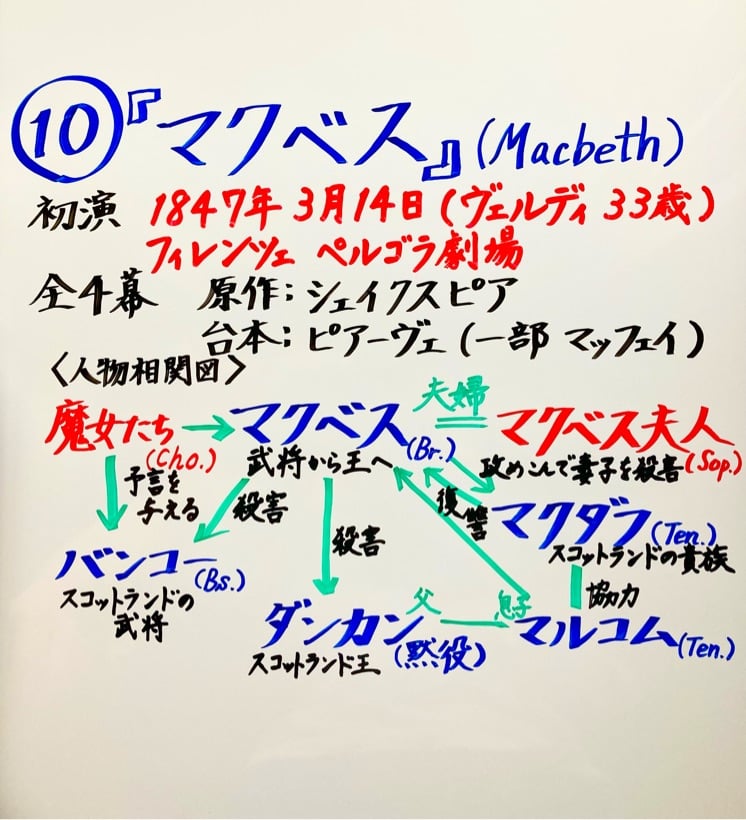 ⑩『マクベス』(Macbeth)
初演 1847年3月14日(ヴェルディ 33歳)
フィレンツェ ペルゴラ劇場
全4幕 原作:シェイクスピア
台本:ピアーヴェ(一部 マッフェイ)
〈人物相関図〉
魔女たち
(Cho.)
マクベス
(Br.)
武将から王へ
夫婦
マクベス夫人
(Sop.)
攻めこんで妻子を殺害
予言を
与える
殺害
殺害
復讐
マクダフ(Ten.)
スコットランドの貴族
バンコー
(Bs.)
スコットランドの
武将
協力
ダンカン
(黙役)
スコットランド王
父
息子
マルコム
(Ten.)